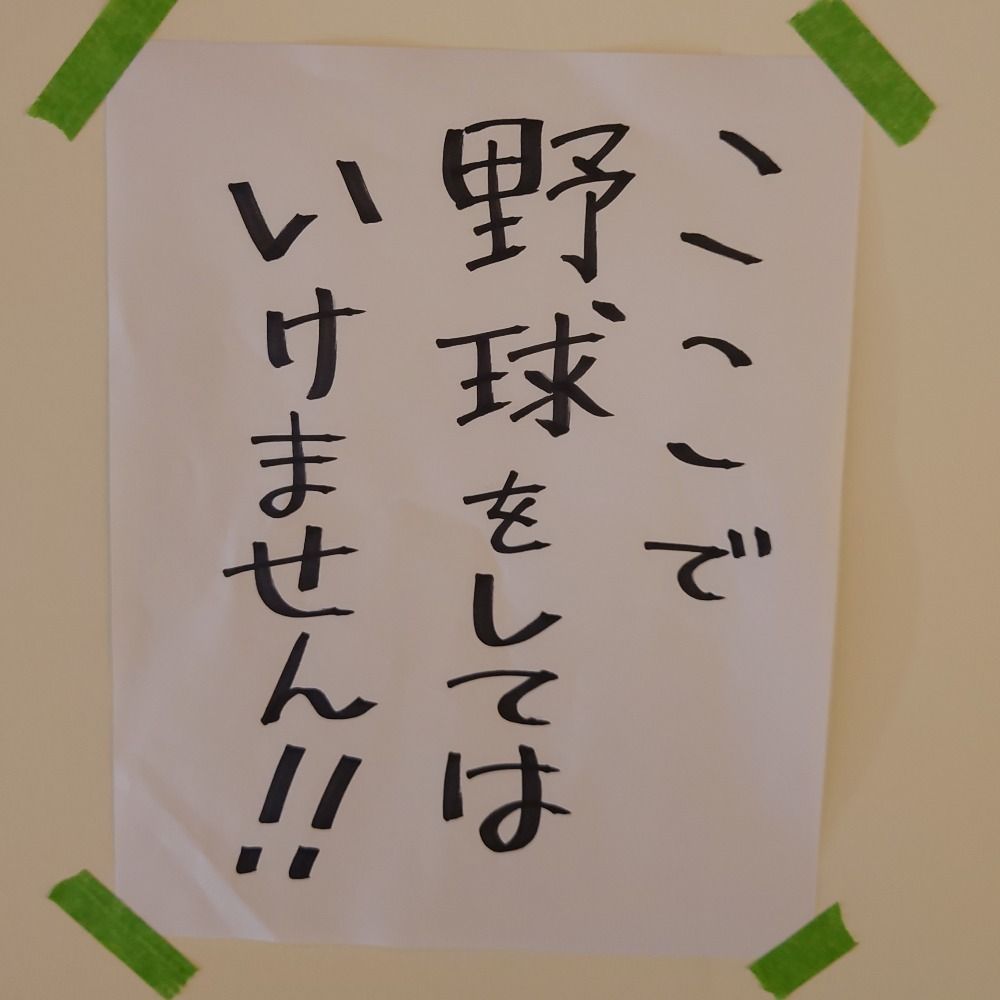 ここで
野球をしては
いけません!!